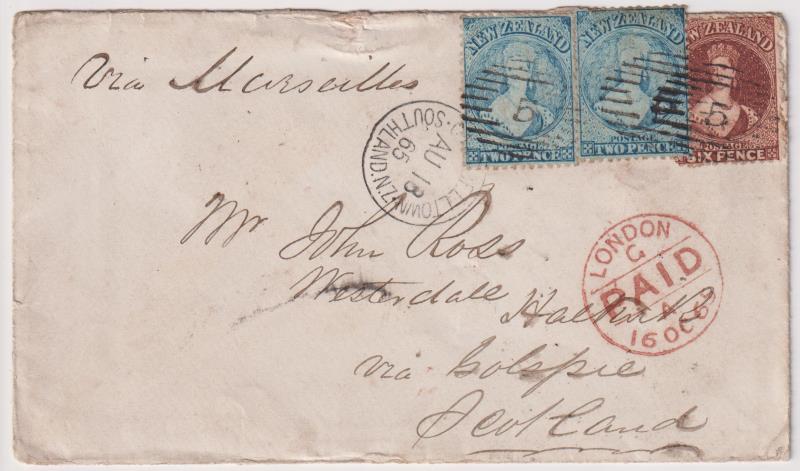 Via Marseilles
NEW ZEALAND
POSTAGE
TWO PENCE
5
NEW ZEALAND
POSTAGE
TWO PENCE
ZEALAND
POSTAGE
SIX PENCE
5
SOUTHLAND.N.Z
AU 18
65
Mr John Ross
Westerdale Halkirk
via Golspie
Scotland
LONDON
G
PAID
A
16 OC 65